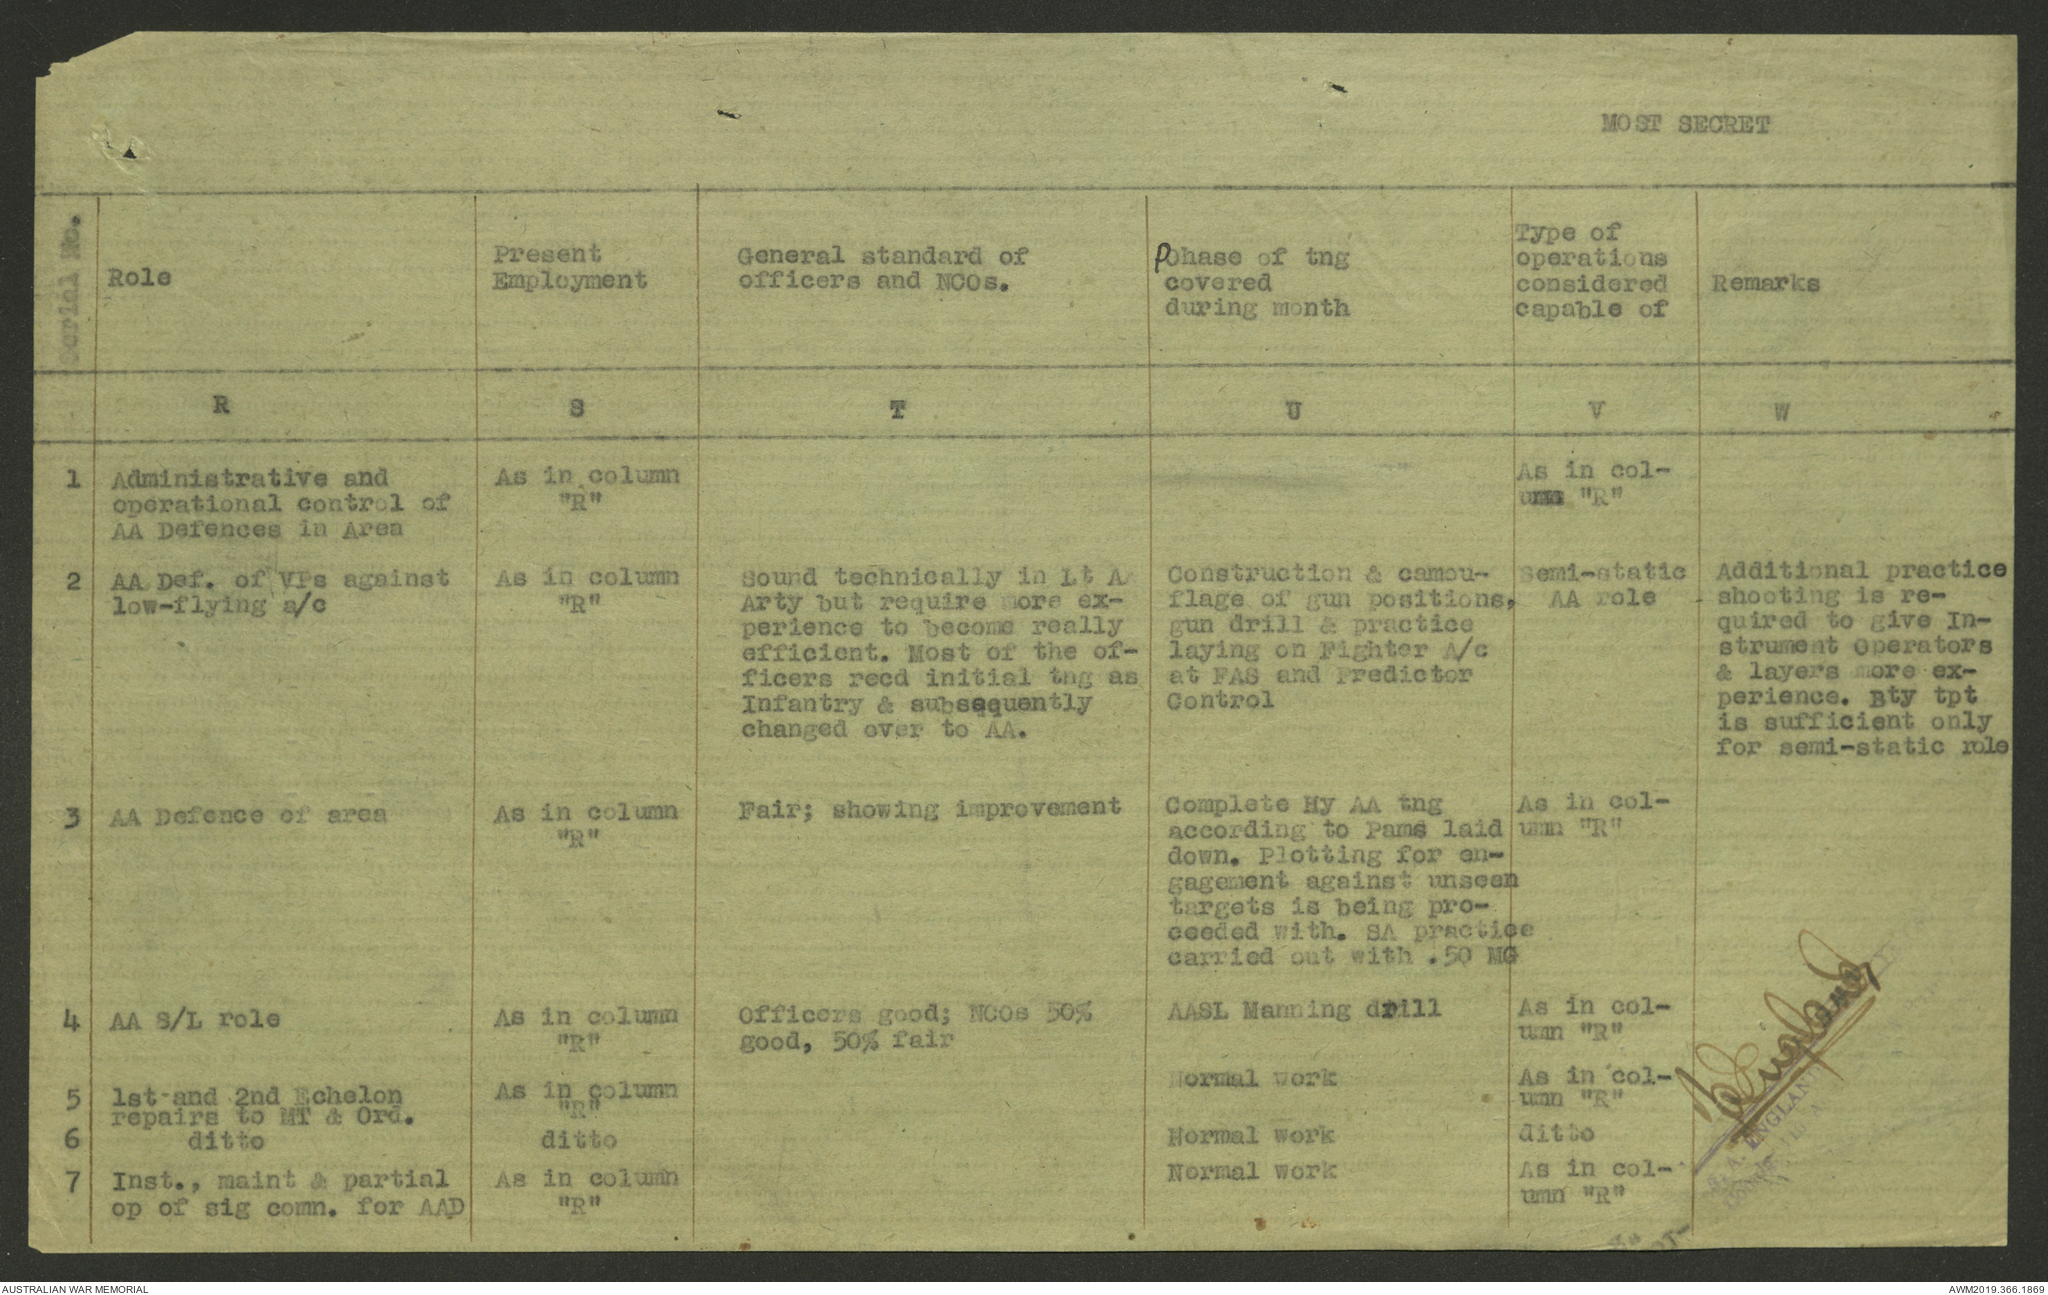 MOST SECRET
Serial No.
Role
Present
Employment
General standard of
officers and NCOs.
Pohase of tng
covered
during month
Type of
operations
considered
capable of
Remarks
R
S
T
U
V
W
1
Administrative and
operational control of
AA Defences in Area
As in column
"R"
As in col-
umn "R"
2
AA Def. of VPs against
low-flying a/c
As in column
"R"
Sound technically in Lt A
Arty but require more ex-
perience to become really
efficient. Most of the of-
ficers recd initial tng as
Infantry & subsequently
changed over to AA.
Construction & camou-
flage of gun positions,
gun drill & practice
laying on Fighter A/c
at FAS and Predictor
Control
Semi-static
AA role
Additional practice
shooting is re-
quired to give In-
strument Operators
& layers more ex-
perience. Bty tpt
is sufficient only
for semi-static role
3
AA Defence of area
As in column
"R"
Fair; showing improvement
Complete Hy AA tng
according to Pams laid
down. Plotting for en-
gagement against unseen
targets is being pro-
ceeded with. SA practice
carried out with .50 MG
As in col-
umn "R"
4
AA S/L role
As in column
"R"
Officers good; NCOs 50%
good, 50% fair
AASL Manning drill
As in col-
umn "R"
5
1st and 2nd Echelon
repairs to MT & Ord.
As in column
"R"
Normal work
As in col-
umn "R"
6
ditto
ditto
Normal work
ditto
7
Inst., maint & partial
op of sig comn. for AAD
As in column
"R"
Normal work
As in col-
umn "R"
ENGLAN
AUSTRALIAN WAR MEMORIAL
AWM2019.366.1869